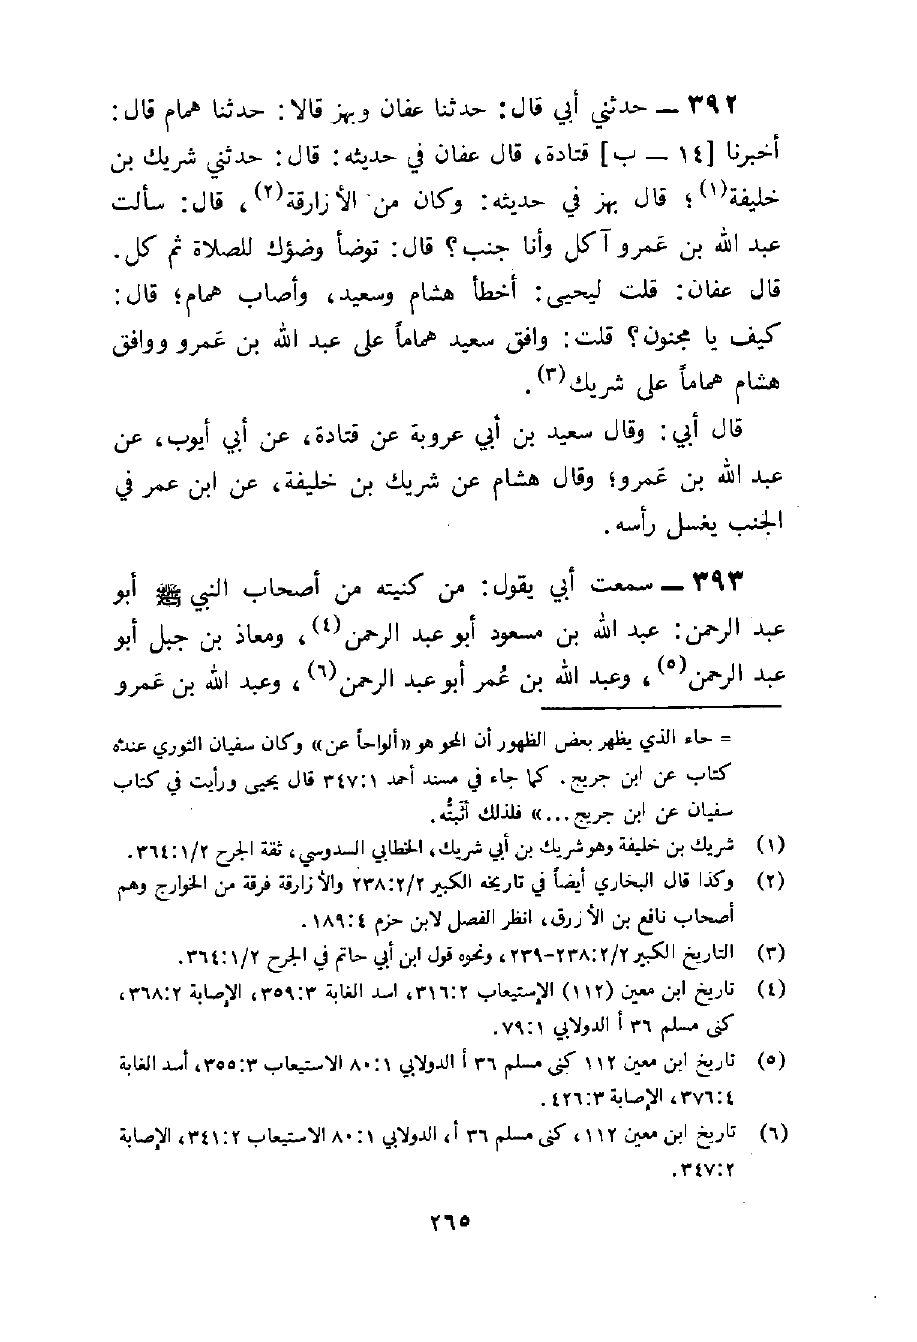 ٣٩٢ ــ حدثني أبي قال: حدثنا عفان وبهز قالا: حدثنا همام قال:
أخبرنا [١٤ ــ ب] قتادة، قال عفان في حديثه: قال: حدثني شريك بن
خليفة(١)؛ قال بهز في حديثه: وكان من الأزارقة(٢)، قال: سألت
عبد الله بن عَمرو آكل وأنا جنب؟ قال: توضأ وضؤك للصلاة ثم كل.
قال عفان: قلت ليحيى: أخطأ هشام وسعيد، وأصاب همام؛ قال:
كيف يا مجنون؟ قلت: وافق سعيد هماماً على عبد الله بن عَمرو ووافق
هشام هماماً على شريك(٣).
قال أبي: وقال سعيد بن أبي عروبة عن قتادة، عن أبي أيوب، عن
عبد الله بن عَمرو؛ وقال هشام عن شريك بن خليفة، عن ابن عمر في
الجنب يغسل رأسه.
٣٩٣ ــ سمعت أبي يقول: من كنيته من أصحاب النبي ﷺ أبو
عبد الرحمن: عبد الله بن مسعود أبو عبد الرحمن(٤)، ومعاذ بن جبل أبو
عبد الرحمن(٥)، وعبد الله بن عُمر أبو عبد الرحمن(٦)، وعبد الله بن عَمرو
= حاء الذي يظهر بعض الظهور أن المحو هو «ألواحاً عن» وكان سفيان الثوري عنده
كتاب عن ابن جريج. كما جاء في مسند أحمد ٣٤٧:١ قال يحيى ورأيت في كتاب
سفيان عن ابن جريج...» فلذلك أثبتُّه.
(١) شريك بن خليفة وهو شريك بن أبي شريك، الخطابي السدوسي، ثقة الجرح ٣٦٤:١/٢.
(٢) وكذا قال البخاري أيضاً في تاريخه الكبير ٢٣٨:٢/٢ والأزارقة فرقة من الخوارج وهم
أصحاب نافع بن الأزرق، انظر الفصل لابن حزم ١٨٩:٤.
(٣) التاريخ الكبير ٢٣٨:٢/٢-٢٣٩، ونحوه قول ابن أبي حاتم في الجرح ٣٦٤:١/٢.
(٤) تاريخ ابن معين (١١٢) الإستيعاب ٣١٦:٢، اسد الغابة ٣٥٩:٣، الإصابة ٣٦٨:٢،
كنى مسلم ٣٦ أ الدولابي ٧٩:١.
(٥) تاريخ ابن معين ١١٢ كنى مسلم ٣٦ أ الدولابي ٨٠:١ الاستيعاب ٣٥٥:٣، أسد الغابة
٣٧٦:٤، الإصابة ٤٢٦:٣.
(٦) تاريخ ابن معين ١١٢، كنى مسلم ٣٦ أ، الدولابي ٨٠:١ الاستيعاب ٣٤١:٢، الإصابة
٣٤٧:٢.
٢٦٥